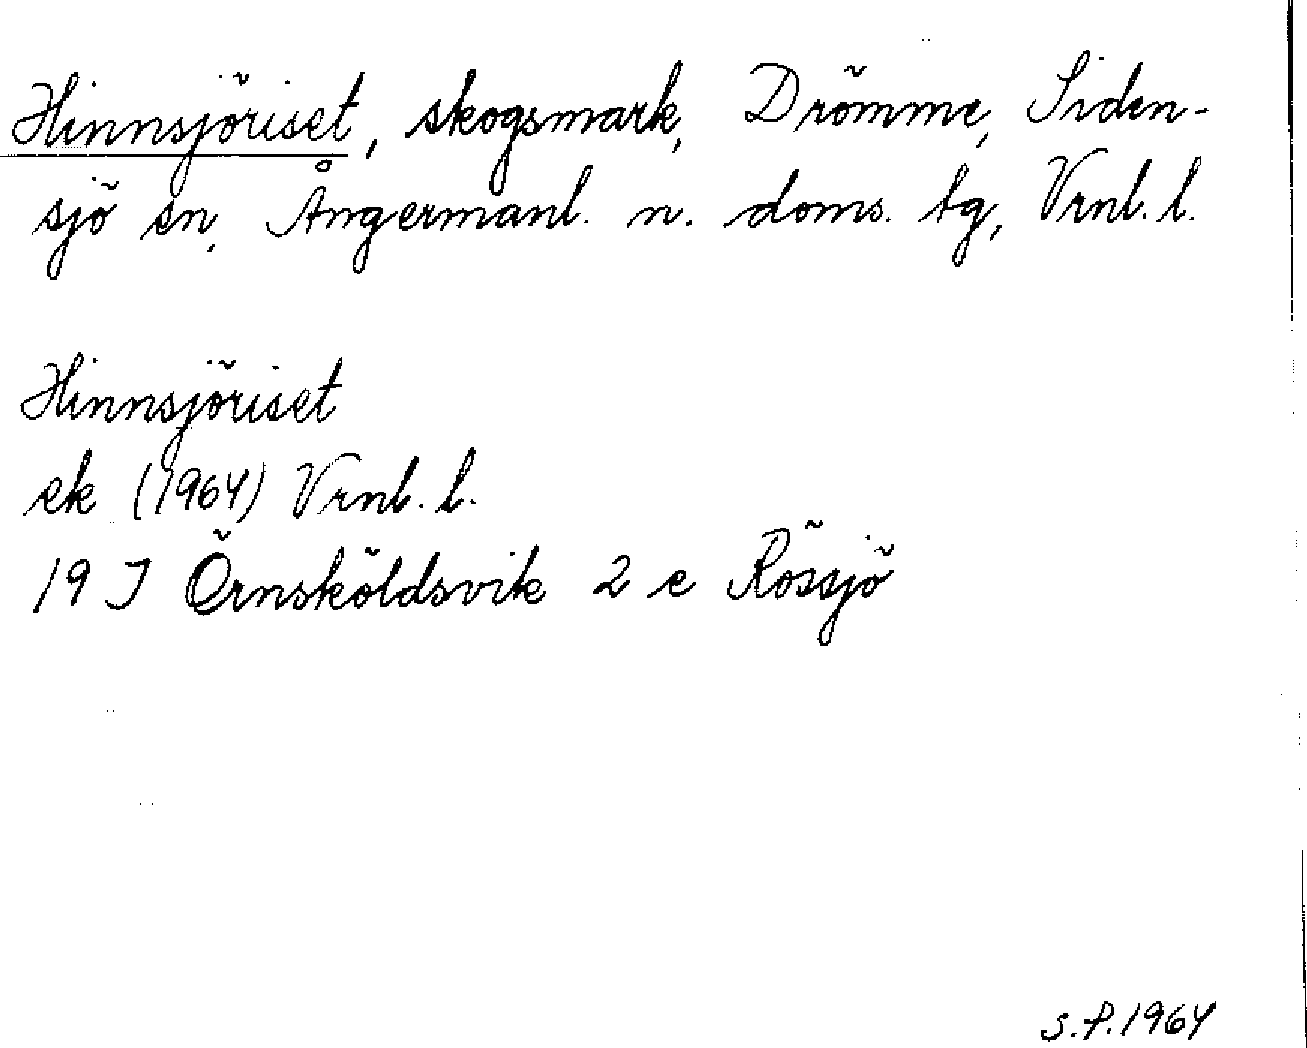 Hinnsjöriset, skogsmark, Drömme, Siden-
sjö sn, Ångermanl. n. doms. tg, Vrnl. l.
Hinnsjöriset
ek (1964) Vrnl. l.
19 J Örnsköldsvik 2 e Rössjö
S.P. 1964